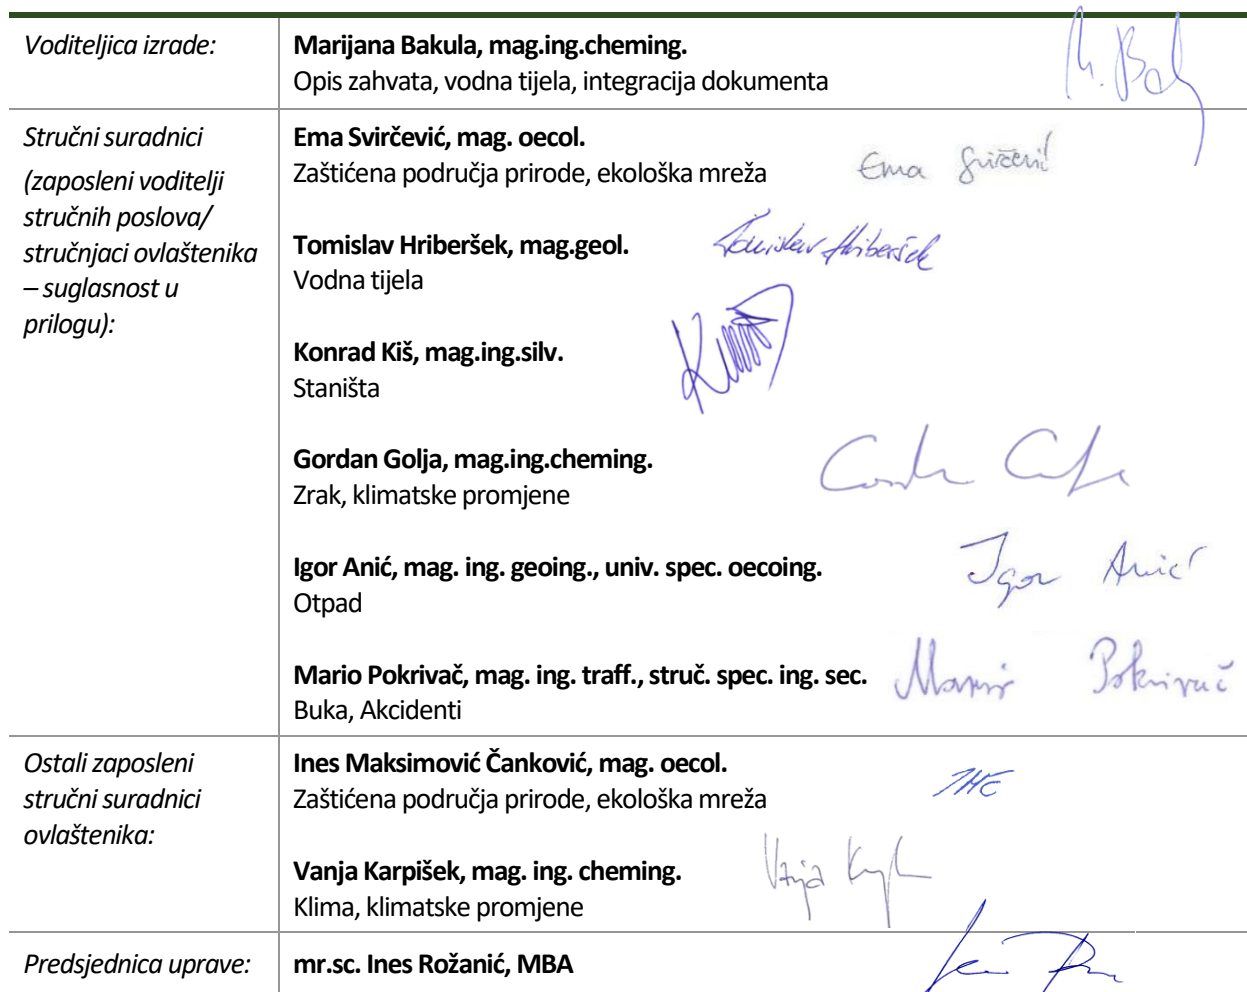 Voditeljica izrade:
Marijana Bakula, mag.ing.cheming.
Opis zahvata, vodna tijela, integracija dokumenta
M. Bak
Stručni suradnici
(zaposleni voditelji
stručnih poslova/
stručnjaci ovlaštenika
– suglasnost u
prilogu):
Ema Svirčević, mag. oecol.
Zaštićena područja prirode, ekološka mreža
Ema Svirčević
Tomislav Hriberšek, mag.geol.
Vodna tijela
Tomislav Hriberšek
Konrad Kiš, mag.ing.silv.
Staništa
Gordan Golja, mag.ing.cheming.
Zrak, klimatske promjene
Igor Anić, mag. ing. geoing., univ. spec. oecoing.
Otpad
Igor Anić
Mario Pokrivač, mag. ing. traff., struč. spec. ing. sec.
Buka, Akcidenti
Mario Pokrivač
Ostali zaposleni
stručni suradnici
ovlaštenika:
Ines Maksimović Čanković, mag. oecol.
Zaštićena područja prirode, ekološka mreža
Vanja Karpišek, mag. ing. cheming.
Klima, klimatske promjene
Vanja
Predsjednica uprave:
mr.sc. Ines Rožanić, MBA